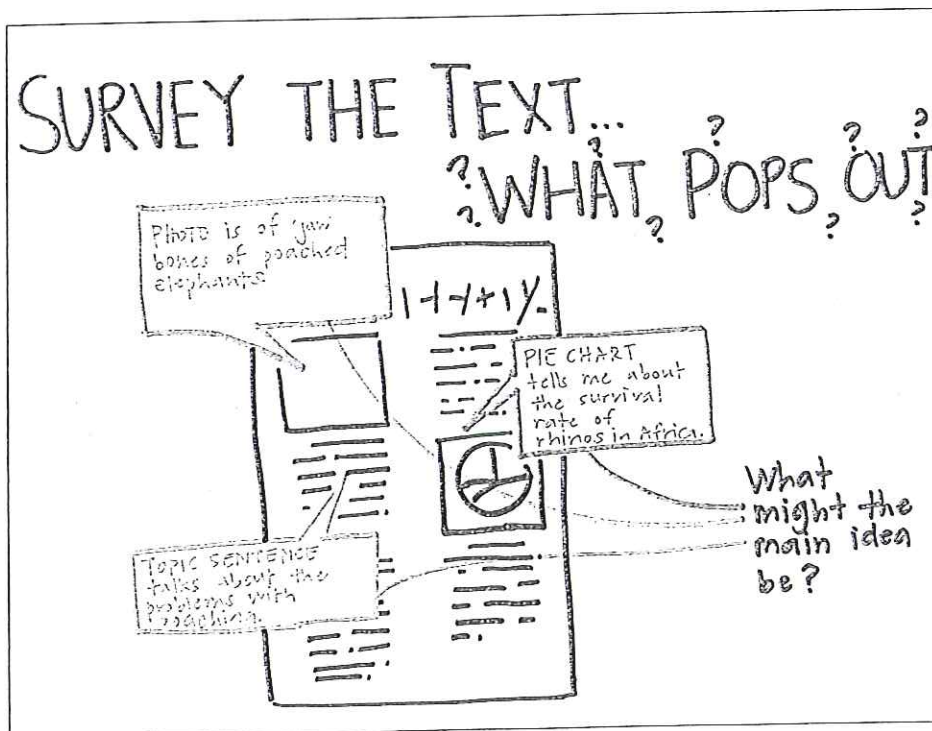 SURVEY THE TEXT...
WHAT POPS OUT
PHOTO is of jaw
bones of poached
elephants
PIE CHART
tells me about
the survival
rate of
rhinos in Africa.
TOPIC SENTENCE
talks about the
problems with
poaching.
What
might the
main idea
be?